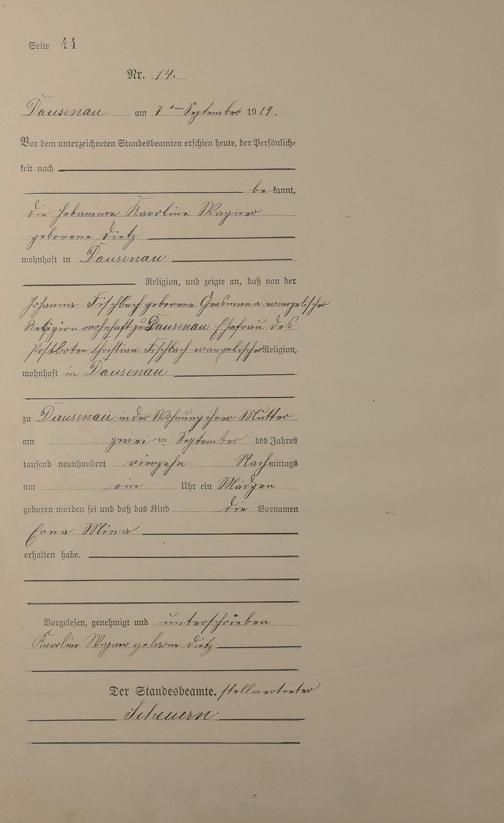 Seite 44
Nr. 14.
Dausenau am 7ten September 1914.
Vor dem unterzeichneten Standesbeamten erschien heute, der Persönlich-
keit nach
be kannt,
die Hebamme Karoline Wagner
geborene Dietz
wohnhaft in Dausenau
Religion, und zeigte an, daß von der
Johanna Fischbach geborene evangelischer
Religion wohnhaft zu Dausenau Ehefrau des
Postboten Christian Fischbach evangelischer Religion,
wohnhaft in Dausenau
zu Dausenau in der Wohnung ihrer Mutter
am zwei ten September des Jahres
tausend neunhundert vierzehn Nachmittags
um ein Uhr ein Mädgen
geboren worden sei und daß das Kind die Vornamen
Erna Mina
erhalten habe.
Vorgelesen, genehmigt und unterschrieben
Karoline Wagner geborne Dietz
Der Standesbeamte. stellvertreter
Scheuern